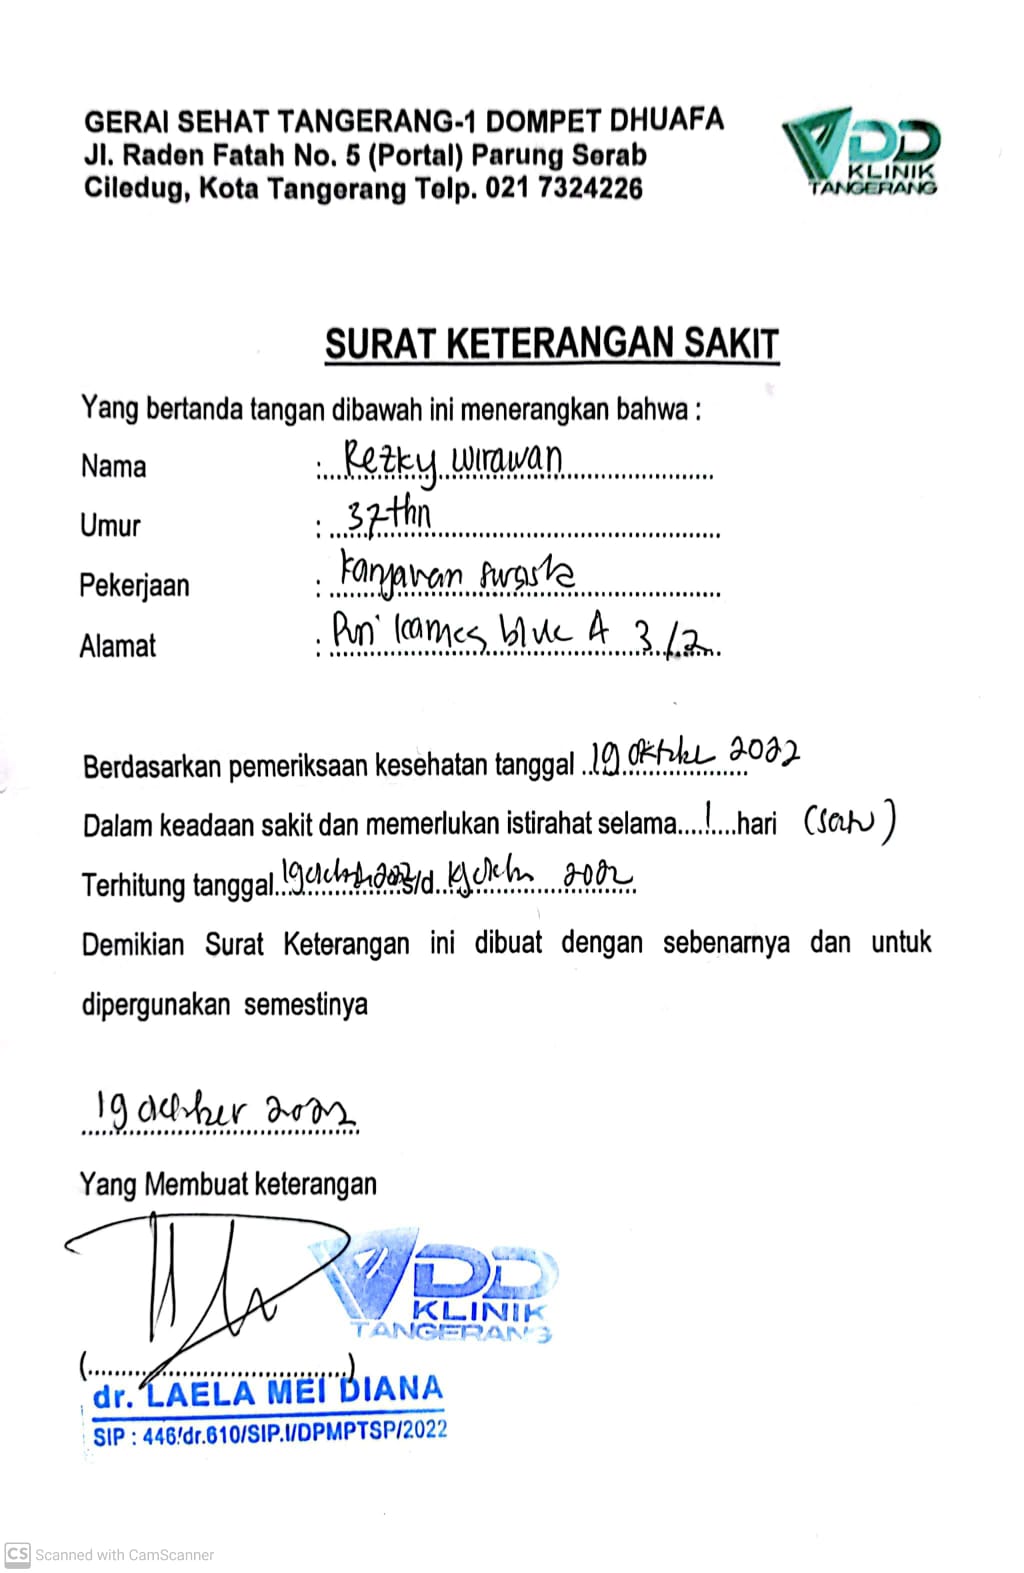 GERAI SEHAT TANGERANG-1 DOMPET DHUAFA
Jl. Raden Fatah No. 5 (Portal) Parung Serab
Ciledug, Kota Tangerang Telp. 021 7324226
DD
KLINIK
TANGERANG
SURAT KETERANGAN SAKIT
Yang bertanda tangan dibawah ini menerangkan bahwa :
Nama : Rezky wirawan
Umur : 37thn
Pekerjaan : karyawan swasta
Alamat : A 3/2
Berdasarkan pemeriksaan kesehatan tanggal 19 2022
Dalam keadaan sakit dan memerlukan istirahat selama....1....hari (satu)
Terhitung tanggal s/d 2022
Demikian Surat Keterangan ini dibuat dengan sebenarnya dan untuk
dipergunakan semestinya
19 2022
Yang Membuat keterangan
DD
KLINIK
TANGERANG
(....................)
dr. LAELA MEI DIANA
SIP : 446/dr.610/SIP.I/DPMPTSP/2022
CS Scanned with CamScanner